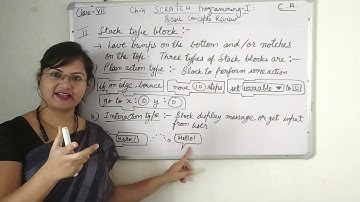 Class-VII Ch-4 SCRATCH Programming-I: C.A.
Basic Concepts Review
II Stack type block :-
→ Have bumps on the bottom and/or notches
on the top. Three types of Stack blocks are :-
Plain action type :- Block to perform some action.
if on edge, bounce move 10 steps set variable ▾ to 0
go to x: 0 y: 0
b) Interaction type :- Stack display message or get input
from user
Hello! Hello!